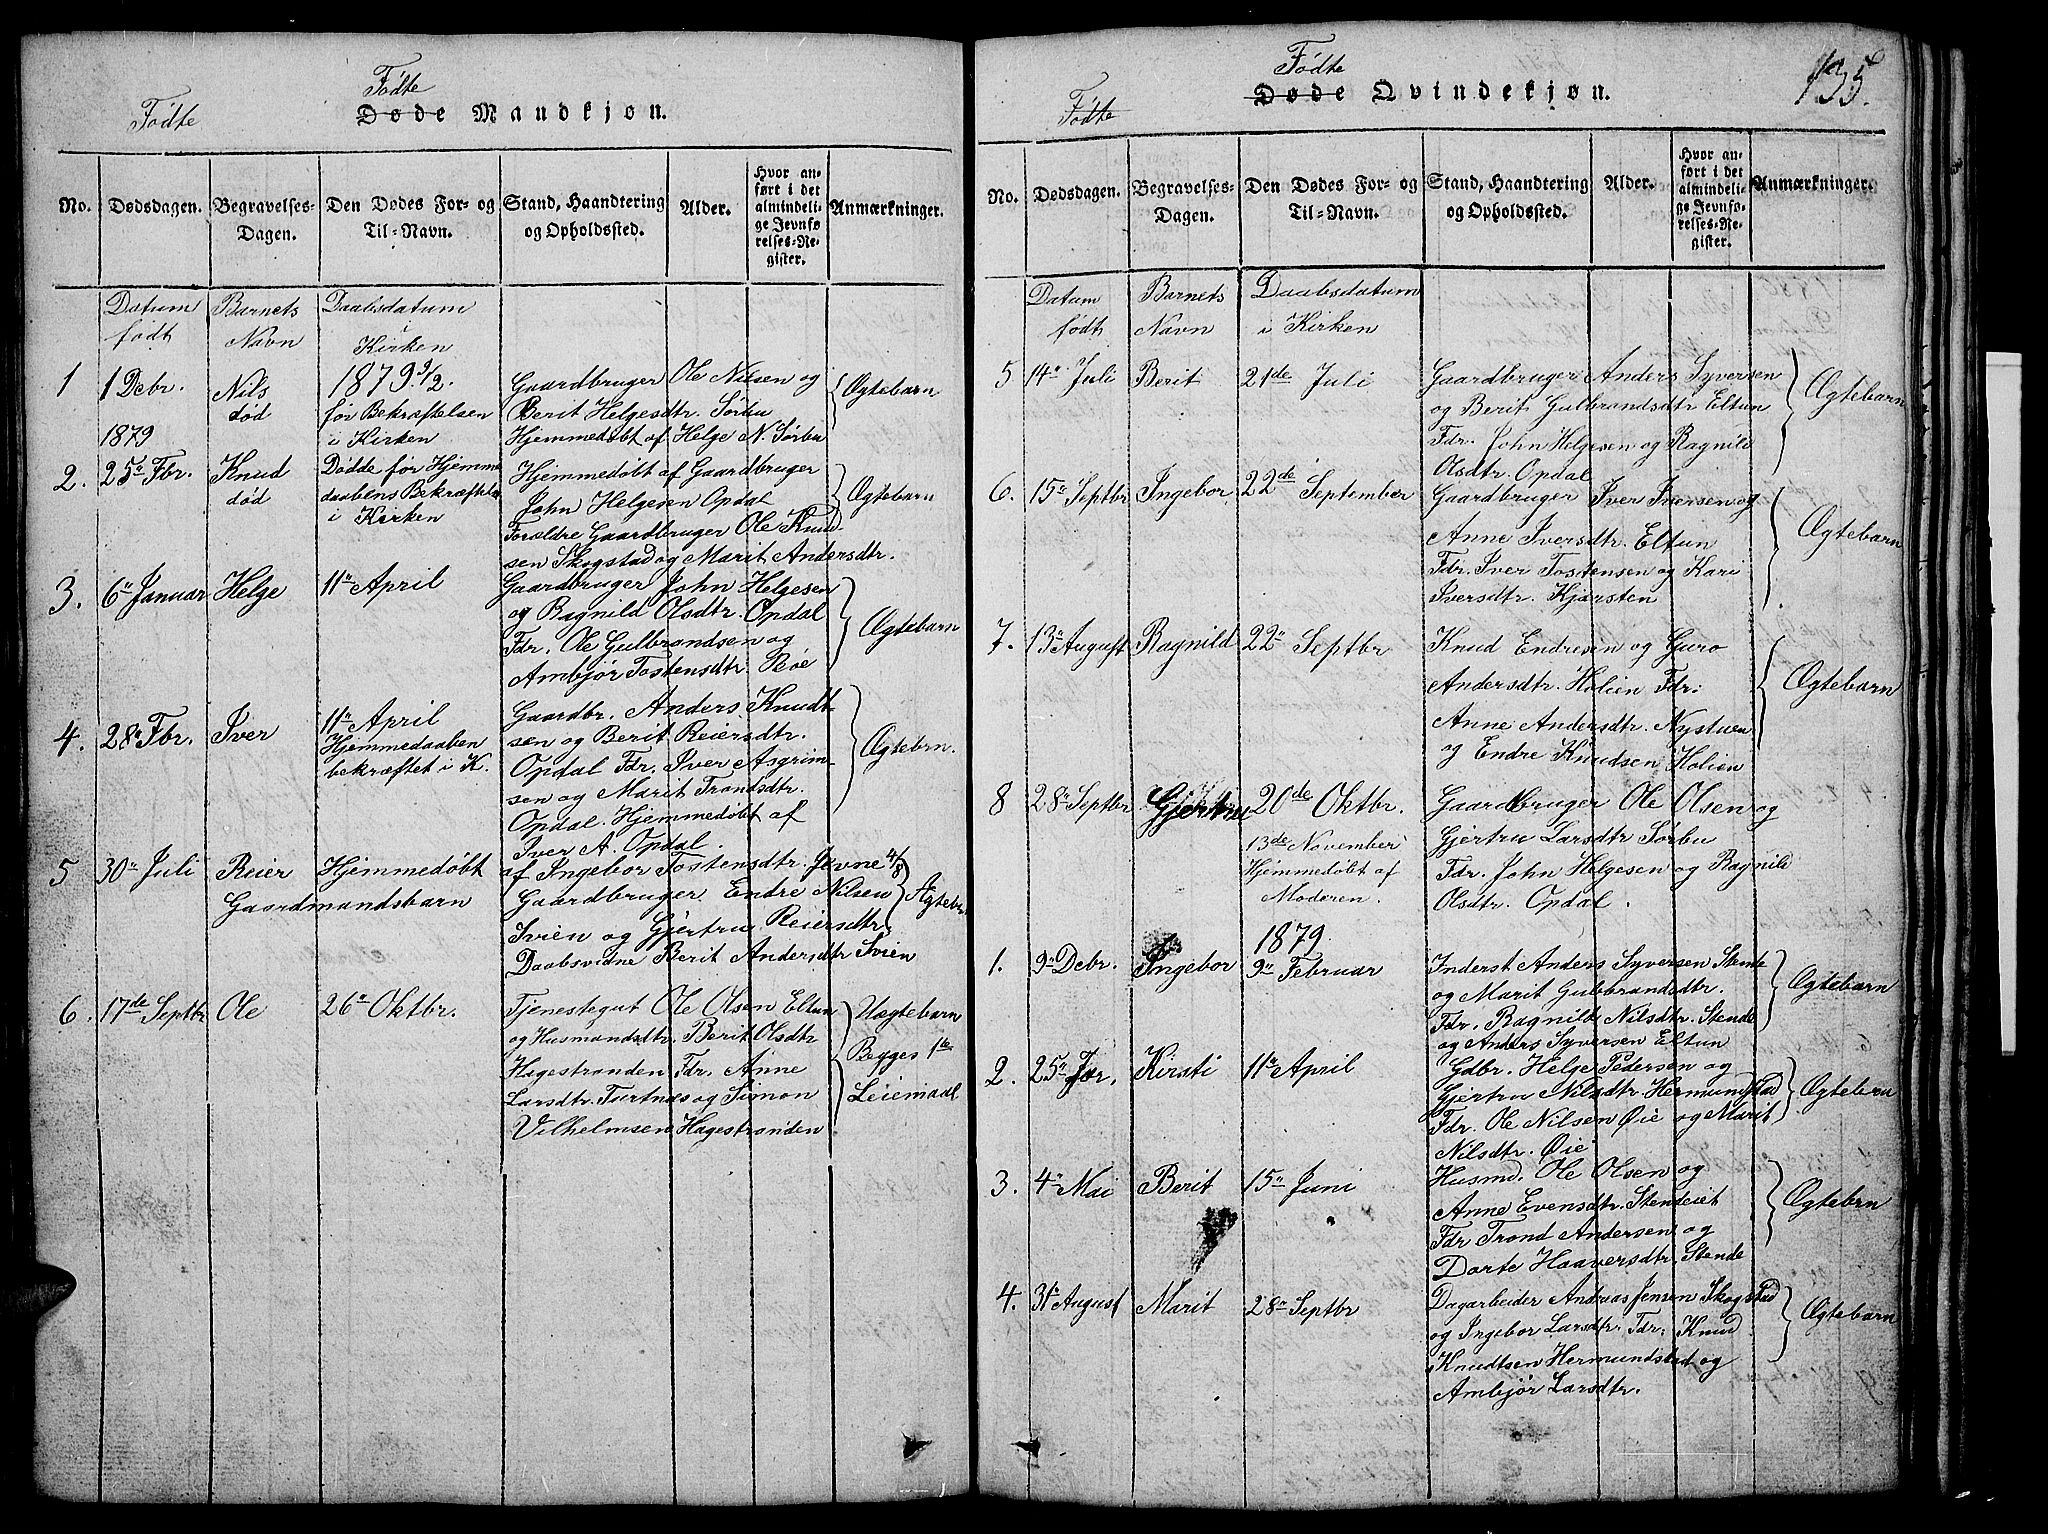 Fødte
Fødte
Døde Mandkjøn.
No.
Dødsdagen.
Begravelses-
Dagen.
Den Dødes For- og
Til-Navn.
Stand, Haandtering
og Opholdssted.
Alder.
Hvor an-
ført i det
almindeli-
ge Jevnfø-
relses-Re-
gister.
Anmærkninger.
Datum
født
Barnets
Navn
Daabsdatum
i
Kirken
1
1 Debr.
Nils
død
1879 9/2.
før Bekræftelsen
i Kirken
Gaardbruger Ole Nilsen og
Berit Helgesdtr. Sørbu
Hjemmedøbt af Helge N. Sørbu
Ægtebarn
1879
2.
25n Fbr.
Knud
død
Dødde før Hjemme
daabens Bekræftelse
i Kirken
Hjemmedøbt af Gaardbruger
John Helgesen Opdal
Forældre Gaardbruger Ole Knud-
sen Skogstad og Marit Andersdtr.
Ægtebarn
3.
6n Januar
Helge
11n April
Gaardbruger John Helgesen
og Ragnild Olsdtr. Opdal
Fdr. Ole Gulbrandsen og
Ambjør Tostensdtr. Reie
Ægtebarn
4.
28n Fbr.
Iver
11n April
Hjemmedaaben
bekræftet i K.
Gaardbr. Anders Knudt-
sen og Berit Reiersdtr.
Opdal Fdr. Iver Asgrim-
sen og Marit Trondsdtr.
Opdal. Hjemmedøbt af
Iver A. Opdal.
Ægtebrn.
5
30n Juli
Reier
Gaardmandsbarn
Hjemmedøbt
af Ingebor Tostensdtr. Jevne 4/8
Gaardbruger Endre Nilsen
Svien og Gjertru Reiersdtr.
Daabsvidne Berit Andersdtr Svien
Ægtebr.
6.
17de Septbr
Ole
26n Oktbr.
Tjenestegut Ole Olsen Eltun
og Husmandsdtr. Berit Olsdtr
Hagestranden Fdr. Anne
Larsdtr. Turtnes og Simon
Vilhelmsen Hagestranden
Uægtebarn
Begges 1te
Leiemaal
Fødte
Fødte
Døde Qvindekjøn.
135.
No.
Dødsdagen.
Begravelses-
Dagen.
Den Dødes For- og
Til-Navn.
Stand, Haandtering
og Opholdssted.
Alder.
Hvor an-
ført i det
almindeli-
ge Jevnfø-
relses-Re-
gister.
Anmærkninger.
Datum
født
Barnets
Navn
Daabsdatum
i Kirken
5
14n Juli
Berit
21de Juli
Gaardbruger Anders Syversen
og Berit Gulbrandsdtr Eltun
Fdr. John Helgesen og Ragnild
Olsdtr. Opdal
Ægtebarn
6.
15n Septbr
Ingebor
22de September
Gaardbruger Iver Iversen og
Anne Iversdtr. Eltun
Fdr. Iver Tostensen og Kari
Iversdtr. Kjørsten
Ægtebarn
7.
13n August
Ragnild
22n Septbr
Knud Endresen og Guro
Andersdtr. Holien Fdr:
Anne Andersdtr. Nystuen
og Endre Knudsen Holien
Ægtebarn
8
28n Septbr
Gjertru
20de Oktbr.
13de November
Hjemmedøbt af
Moderen.
Gaardbruger Ole Olsen og
Gjertru Larsdtr Sørbu
Fdr. John Helgesen og Ragnild
Olsdtr. Opdal.
1879
1.
9n Debr.
Ingebor
9n Februar
Inderst Anders Syversen Stende
og Marit Gulbrandsdtr.
Fdr. Ragnild Nilsdtr. Stende
og Anders Syversen Eltun
Ægtebarn
2.
25n Jar.
Kirsti
11n April
Gdbr. Helge Pedersen og
Gjertru Nilsdtr Hermundstad
Fdr. Ole Nilsen Øie og Marit
Nilsdtr. Øie
Ægtebrn
3.
4n Mai
Berit
15n Juni
Husmd. Ole Olsen og
Anne Evensdtr. Stendeiet
Fdr Trond Andersen og
Dorte Haaversdtr. Stende
Ægtebrn
4.
31n August
Marit
28n Septbr
Dagarbeider Andreas Jensen Skogstad
og Ingebor Larsdtr. Fdr. Knud
Knudtsen Hermundstad og
Ambjør Larsdtr.
Ægtebarn